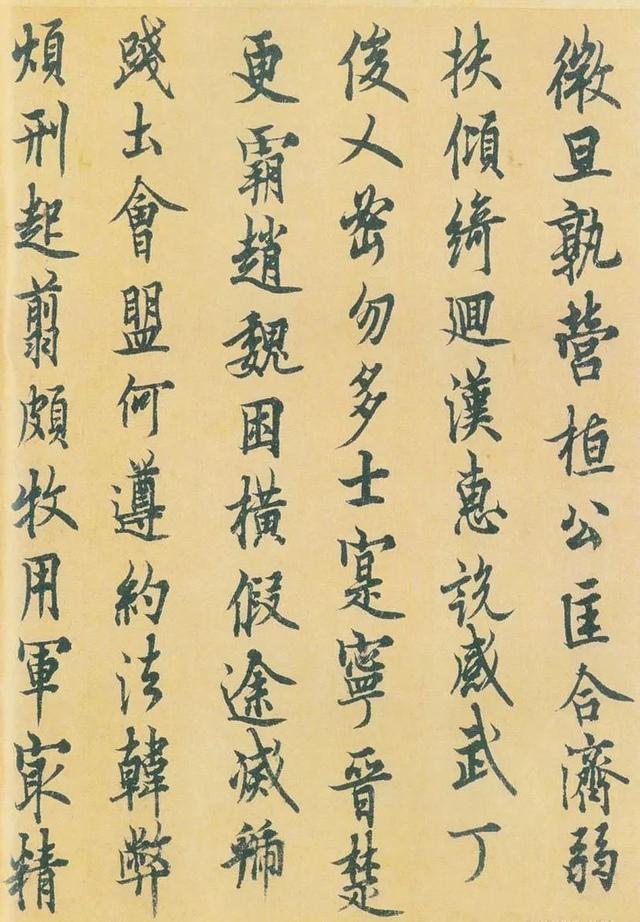 微旦孰營桓公匡合濟弱
扶傾綺迴漢惠説感武丁
俊乂密勿多士寔寧晉楚
更霸趙魏困橫假途滅虢
踐土會盟何遵約法韓弊
煩刑起翦頗牧用軍冣精